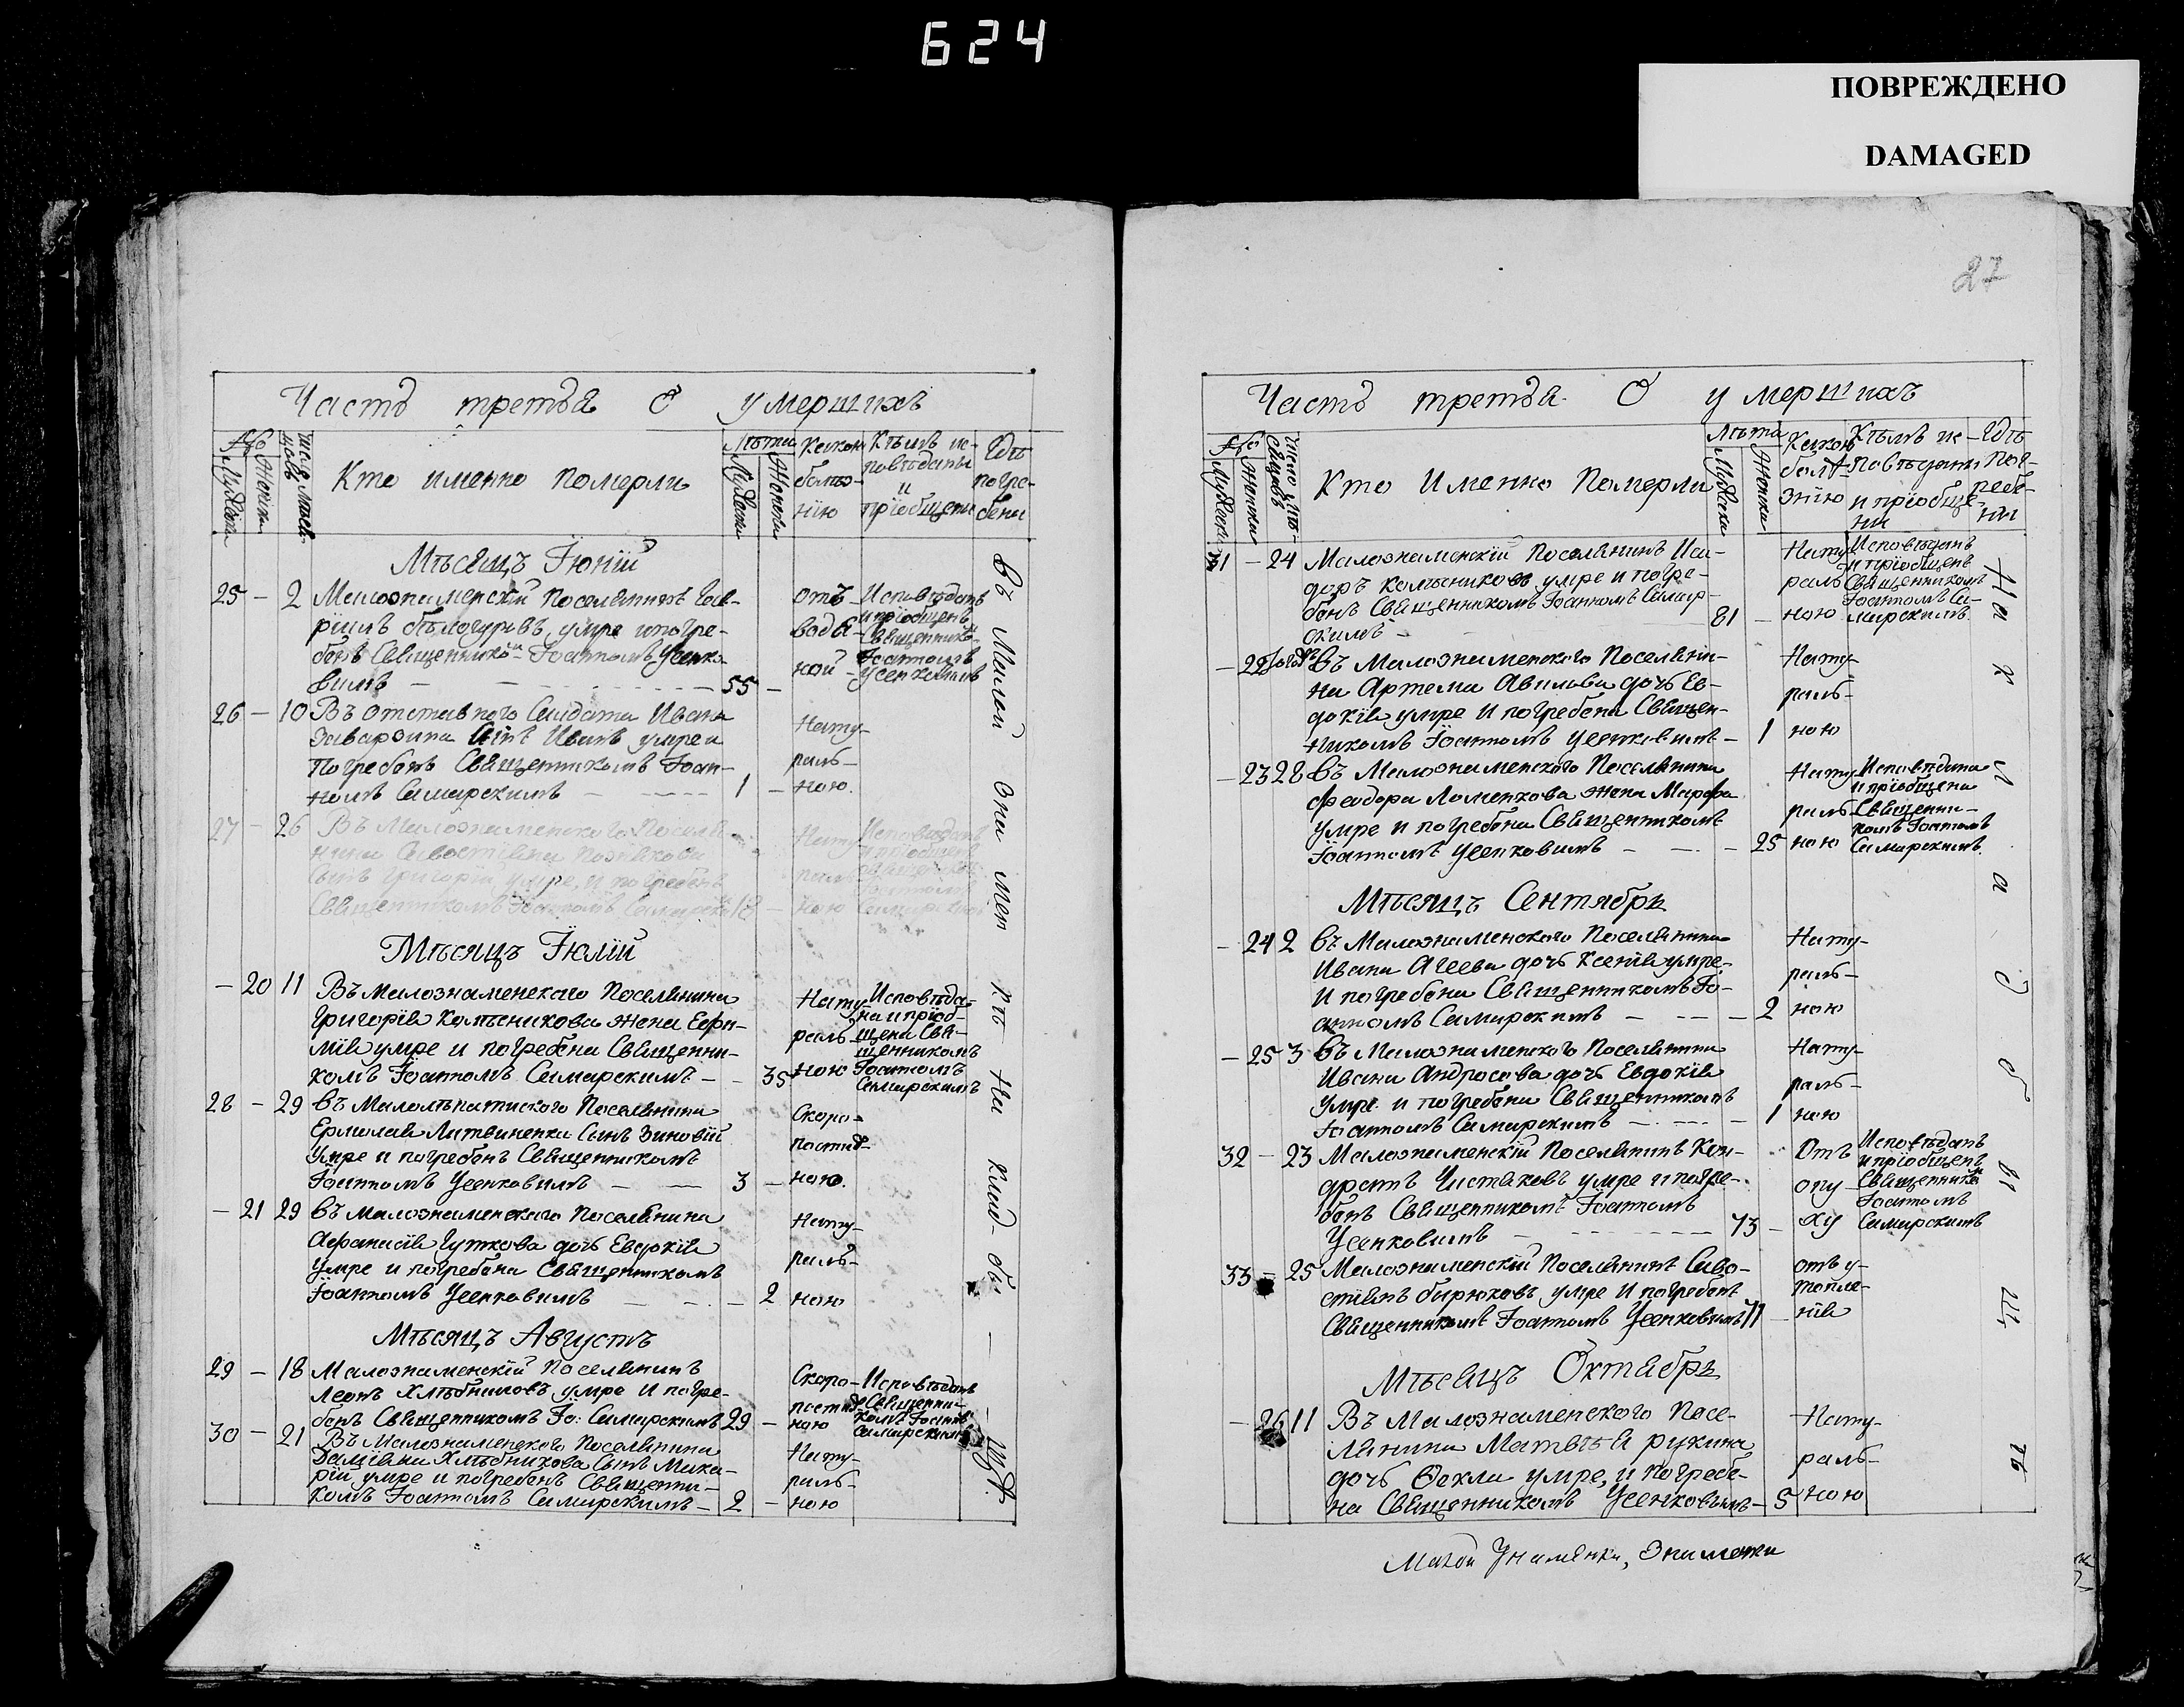 624
ПОВРЕЖДЕНО
DAMAGED
Часть третья О умершихъ
№
Мужеска
Женска
Кто именно Померли
Лѣта
Мужеска
Женска
Какою болѣзнію
Кѣмъ исповѣданы и пріобщены
Гдѣ погребены
Мѣсяцъ Іюній
25 – 2 Малознаменскій Поселянинъ Гав-
ріилъ бѣлогуровъ умре и погре-
бенъ Священником Іоанномъ Усенко-
вымъ – 55 –
отъ водяной
Исповѣданъ и пріобщенъ Священником Іоанномъ Усенковымъ
26 – 10 Въ отставного Салдата Ивана
Заварзина Сынъ Иванъ умре и
Погребенъ Священникомъ Іоан-
номъ Самарскимъ – 1 –
Нату-
раль-
ною.
27 – 26 Въ Малознаменского Поселя-
нина Савостіяна Познякова
сынъ Григорій умре, и погребенъ
Священникомъ Іоанномъ Самарски 18 –
Нату-
раль-
ною
Мѣсяцъ Іюлій
– 20 11 Въ Малознаменскаго Поселянина
Григорія Колѣсникова Жена Евфи-
мія умре и погребена Священни-
комъ Іоанномъ Самарскимъ – 35
Нату-
раль-
ною
Исповѣда-
на и пріоб-
щена Свя-
щенникомъ
Іоанномъ
Самарскимъ
28 – 29 въ Поселянина
Ермолая Литвиненка Сынъ Зиновій
Умре и погребенъ Священникомъ
Іоанномъ Усенковымъ – 3 –
Скоро-
постиж-
ною.
– 21 29 въ Малознаменского Поселянина
Афанасія Гуткова дочь Евдокія
Умре и погребена Священникомъ
Іоанномъ Усенковымъ – 2
Нату-
раль-
ною
Мѣсяцъ Августъ
29 – 18 Малознаменскій Поселянинъ
Леонъ Хлѣбниковъ умре И погре-
бенъ Священникомъ Іо: Самарскимъ 29 –
Скоро-
постиж-
ною
Исповѣданъ
Священни-
комъ Іоанно
Самарскимъ
30 – 21 Въ Малознаменского Поселянина
Даміана Хлѣбникова Сынъ Мака-
рій умре и погребенъ Священни-
комъ Іоанномъ Самарскимъ – 2 –
Нату-
раль-
ною
въ Малой Знаменкѣ На кладбы – щѣ.
27
Часть третья О умершихъ
№
Мужеска
Женска
Кто Именно Померли
Лѣта
Мужеска
Женска
Какою болѣ-
знію
Кѣмъ ис-
повѣданы
и пріобще-
ны
Гдѣ
пог-
ребе-
ны
31 – 24 Малознаменскій Поселянинъ Иси-
доръ Колѣсниковъ умре и погре-
бенъ Священникомъ Іоанномъ Самар-
скимъ – 81 –
Нату-
раль-
ною
Исповѣданъ
и пріобщенъ
Священникомъ
Іоанномъ Са-
марскимъ
– 22 въ Малознаменского Поселяни-
на Артема Авилова дочь Ев-
докія умре И погребена Священ-
никомъ Іоанномъ Усенковымъ – 1
Нату-
раль-
ною
– 23 28 въ Малознаменского Поселянина
Феодора Ломенкова Жена Марфа
умре и погребена Священникомъ
Іоанномъ Усенковымъ – 25
Нату-
раль-
ною
Исповѣдана
и пріобщена
Священни-
комъ Іоанномъ
Самарскимъ.
Мѣсяцъ Сентябрь
– 24 2 въ Малознаменского Поселянина
Ивана Агеева дочь Ксенія умре,
И погребена Священникомъ Іо-
анномъ Самарскимъ – 2
Нату-
раль-
ною
– 25 3 въ Малознаменского Поселянина
Ивана Андросова дочь Евдокія
Умре и погребена Священникомъ
Іоанномъ Самарскимъ – 1
Нату-
раль-
ною
32 – 23 Малознаменскій Поселянинъ Кон-
дратъ Чистяковъ умре и погре-
бенъ Священникомъ Іоанномъ
Усенковымъ – 73 –
Отъ
опу-
ху
Исповѣданъ
и пріобщенъ
Священником
Іоанномъ
Самарскимъ
33 – 25 Малознаменскій Поселянинъ Саво-
стіянъ бирюковъ умре И погребенъ
Священникомъ Іоанномъ Усенковымъ 71 –
отъ у-
топле-
нія
Мѣсяцъ Октябрь
– 26 11 Въ Малознаменского Посе-
лянина Матвѣя рукина
дочь Фекла умре, и погребе-
на Священникомъ Усенковымъ – 5
Нату-
раль-
ною
На кладбищѣ
Малой Знаменки,